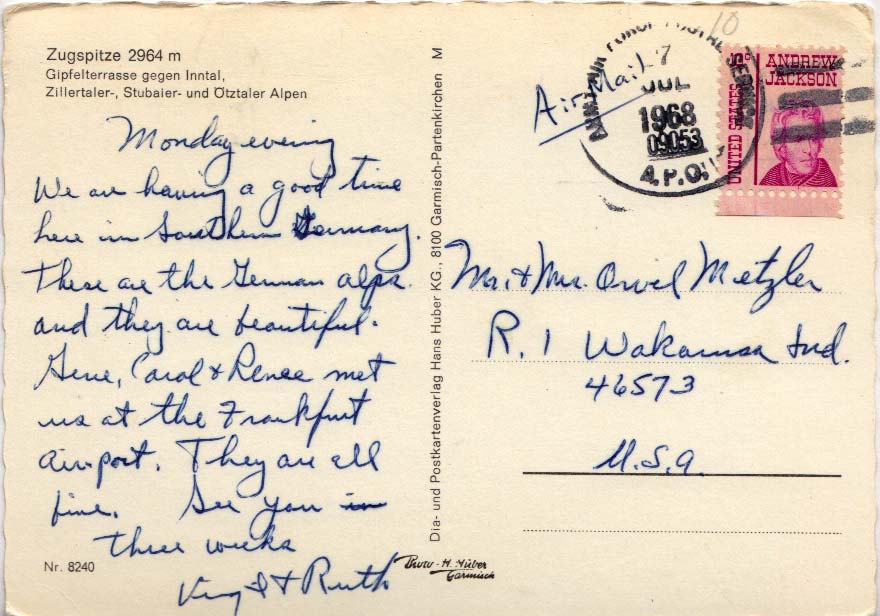 Zugspitze 2964 m
Gipfelterrasse gegen Inntal,
Zillertaler-, Stubaier- und Ötztaler Alpen
Monday evening
We are having a good time
here in Southern Germany.
These are the German alps
and they are beautiful.
Gene, Carol & Renee met
us at the Frankfurt
airport. They are all
fine. See you in
three weeks
Virgil & Ruth
Nr. 8240
Dia- und Postkartenverlag Hans Huber KG., 8100 Garmisch-Partenkirchen M
Huber
Garmisch
10
Air Mail
POSTAL SERVICE
7
JUL
1968
09053
A.P.O.
UNITED STATES
ANDREW
JACKSON
Mr. & Mrs. Orvel Metzler
R. 1 Wakarusa Ind.
46573
U.S.A.